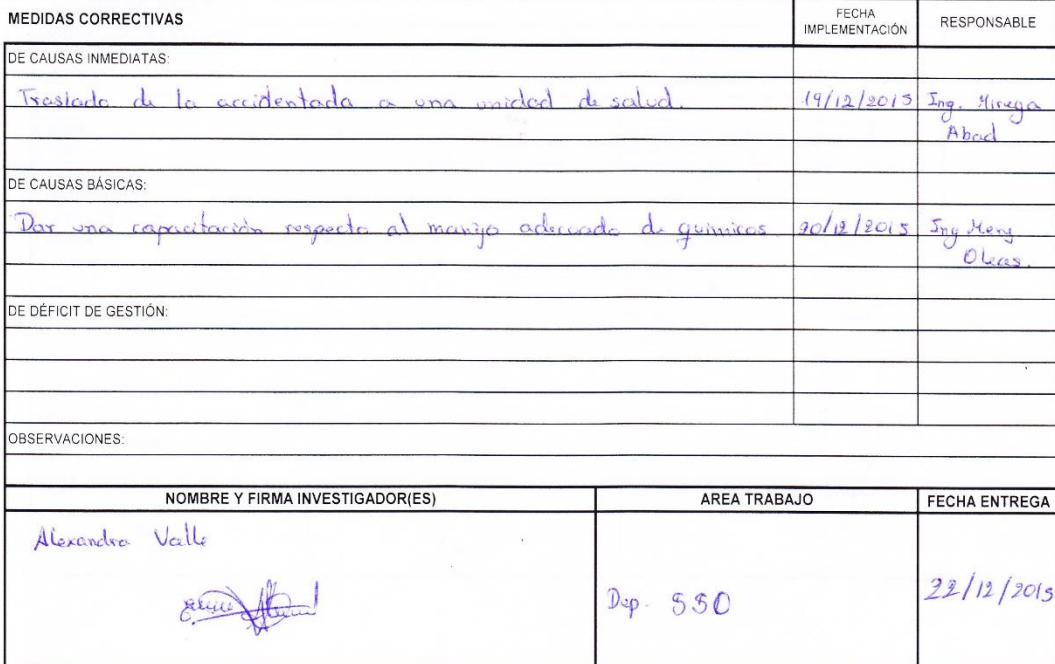 MEDIDAS CORRECTIVAS
FECHA IMPLEMENTACIÓN
RESPONSABLE
DE CAUSAS INMEDIATAS:
Traslado de la accidentada a una unidad de salud. 19/12/2015 Ing.
Abad
DE CAUSAS BÁSICAS:
Dar una capacitación respecto al manijo adecuado de quimicos 20/12/2015 Ing
Oleas.
DE DÉFICIT DE GESTIÓN:
OBSERVACIONES:
NOMBRE Y FIRMA INVESTIGADOR(ES) AREA TRABAJO FECHA ENTREGA
Alexandra Valle
Dep. SSO 22/12/2015